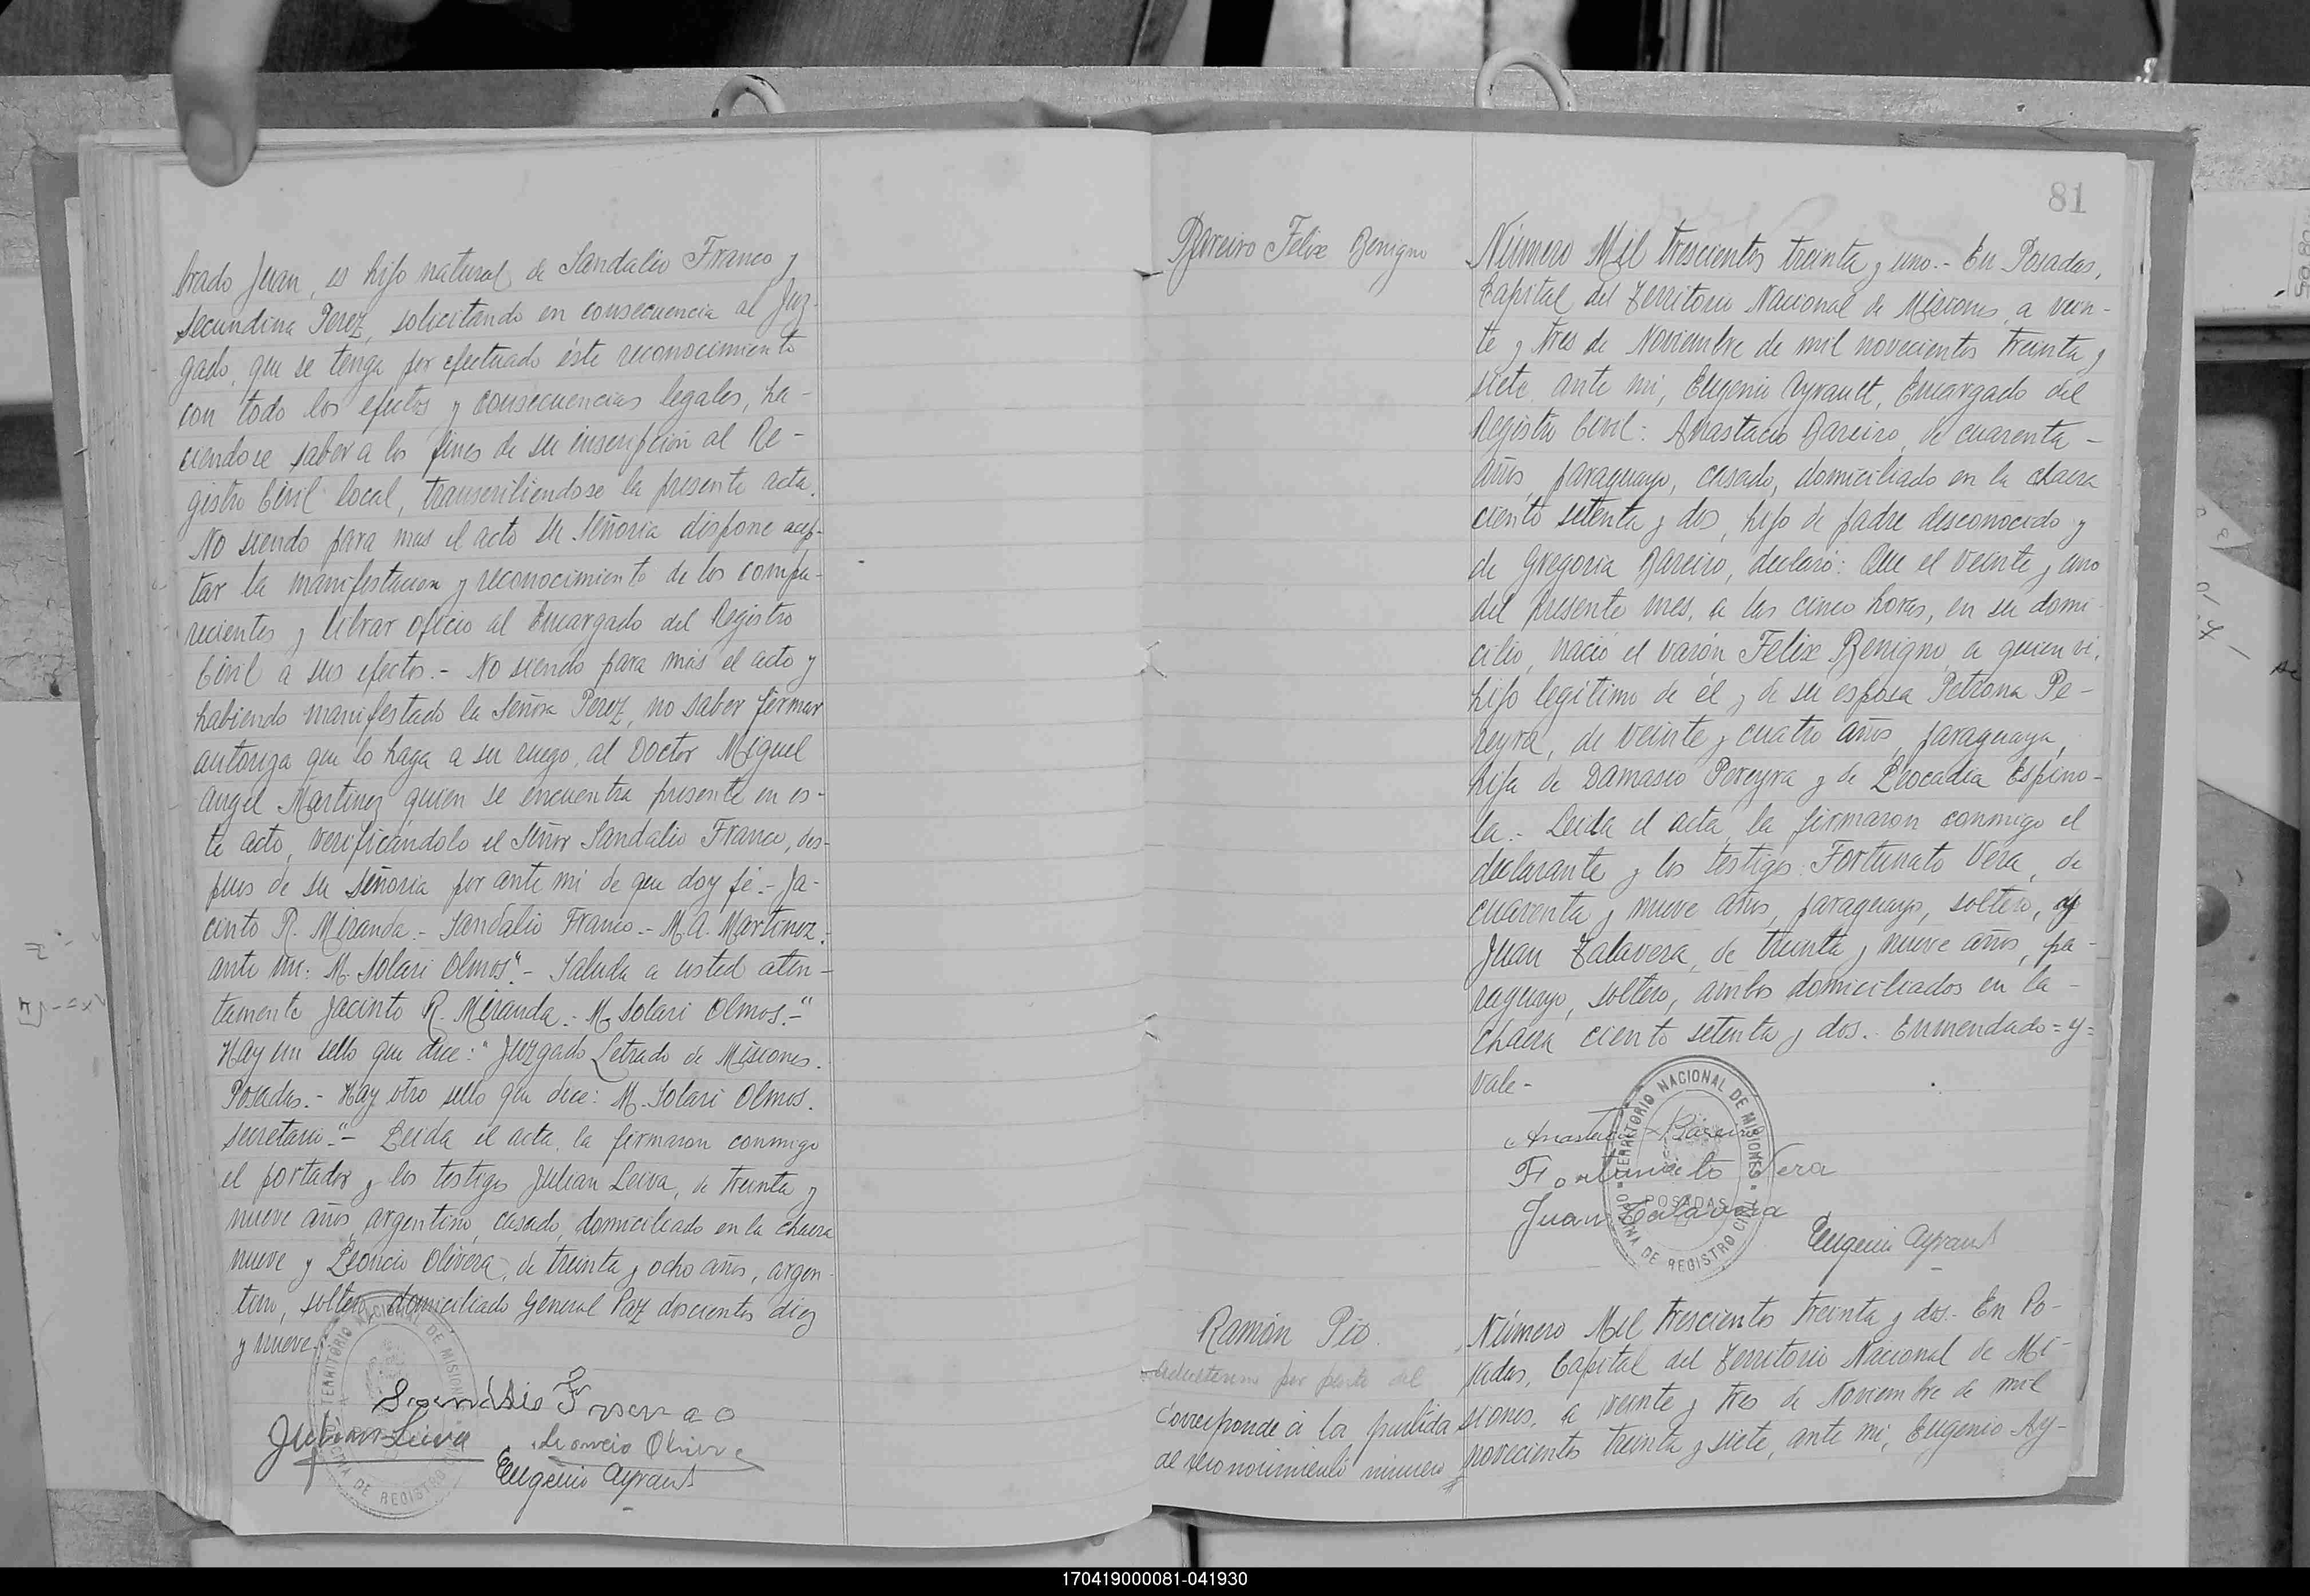 brado Juan, es hijo natural de Sandalio Franco y
Secundina Perez, solicitando en consecuencia al Juz-
gado, que se tenga por efectuado éste reconocimiento
con todo los efectos y consecuencias legales, ha-
ciendose saber a los fines de su inscripción al Re-
gistro Civil local, transcribiendose la presente acta.
No siendo para mas el acto su Señoria dispone acep-
tar la manifestacion y reconocimiento de los compa-
recientes y librar oficio al Encargado del Registro
Civil a sus efectos.- No siendo para más el acto y
habiendo manifestado la Señora Perez, no saber firmar
autoriza que lo haga a su ruego, al Doctor Miguel
Angel Martinez quien se encuentra presente en es-
te acto, verificándolo el Señor Sandalio Franco, des-
pues de su Señoria por ante mi de que doy fé.- Ja-
cinto R. Miranda.- Sandalio Franco.- M.A. Martinez.-
ante mi: M. Solari Olmos".- Saluda a usted aten-
tamente Jacinto R. Miranda.- M. Solari Olmos.-"
Hay un sello que dice:" Juzgado Letrado de Misiones.
Posadas.- Hay otro sello que dice: M. Solari Olmos.
Secretario."- Leida el acta, la firmaron conmigo
el portador y los testigos Julian Leiva, de treinta y
nueve años, argentino, casado, domiciliado en la chacra
nueve y Leoncio Olivera, de treinta y ocho años, argen-
tino, soltero, domiciliado General Paz doscientos diez
y nueve.
TERRITORIO NACIONAL DE MISIONES
OFICINA DE REGISTRO CIVIL
Sandalio Franco
Julian Leiva
Leoncio Olivera
Eugenio Ayrault
81
Bareiro Felix Benigno
Número Mil trescientos treinta y uno.- En Posadas,
Capital del Territorio Nacional de Misiones, a vein-
te y tres de Noviembre de mil novecientos treinta y
siete, ante mi, Eugenio Ayrault, Encargado del
Registro Civil: Anastacio Bareiro, de cuarenta -
años, paraguayo, casado, domiciliado en la chacra
ciento setenta y dos, hijo de padre desconocido y
de Gregoria Bareiro, declaró: Que el veinte y uno
del presente mes, a las cinco horas, en su domi-
cilio, nació el varón Felix Benigno, a quien vi,
hijo legítimo de él y de su esposa Petrona Pe-
reyra, de veinte y cuatro años, paraguaya,
hija de Damasio Pereyra y de Leocadia Espino-
la.- Leida el acta, la firmaron conmigo el
declarante y los testigos: Fortunato Vera, de
cuarenta y nueve años, paraguayo, soltero, y
Juan Talavera, de treinta y nueve años, pa-
raguayo, soltero, ambos domiciliados en la -
chacra ciento setenta y dos.- Enmendado=y=
Vale-
TERRITORIO NACIONAL DE MISIONES
POSADAS
OFICINA DE REGISTRO CIVIL
Anastacio Bareiro
Fortunato Vera
Juan Talavera
Eugenio Ayrault
Ramón Pio.
adulterino por parte del
Corresponde á la partida
de reconocimiento número
Número Mil trescientos treinta y dos.- En Po-
sadas, Capital del Territorio Nacional de Mi-
siones, a veinte y tres de Noviembre de mil
novecientos treinta y siete, ante mi, Eugenio Ay-
170419000081-041930